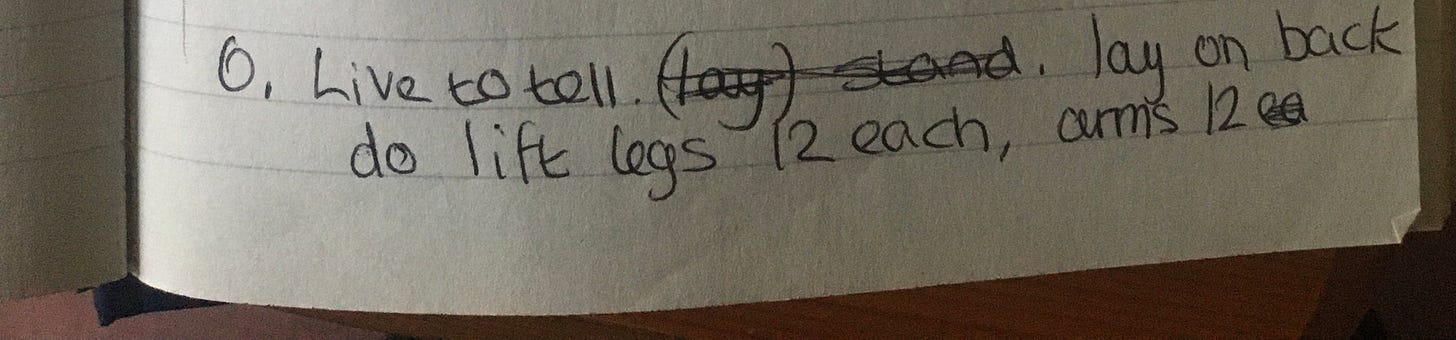 0. Live to tell. (lay) stand. lay on back
do lift legs 12 each, arms 12 ea